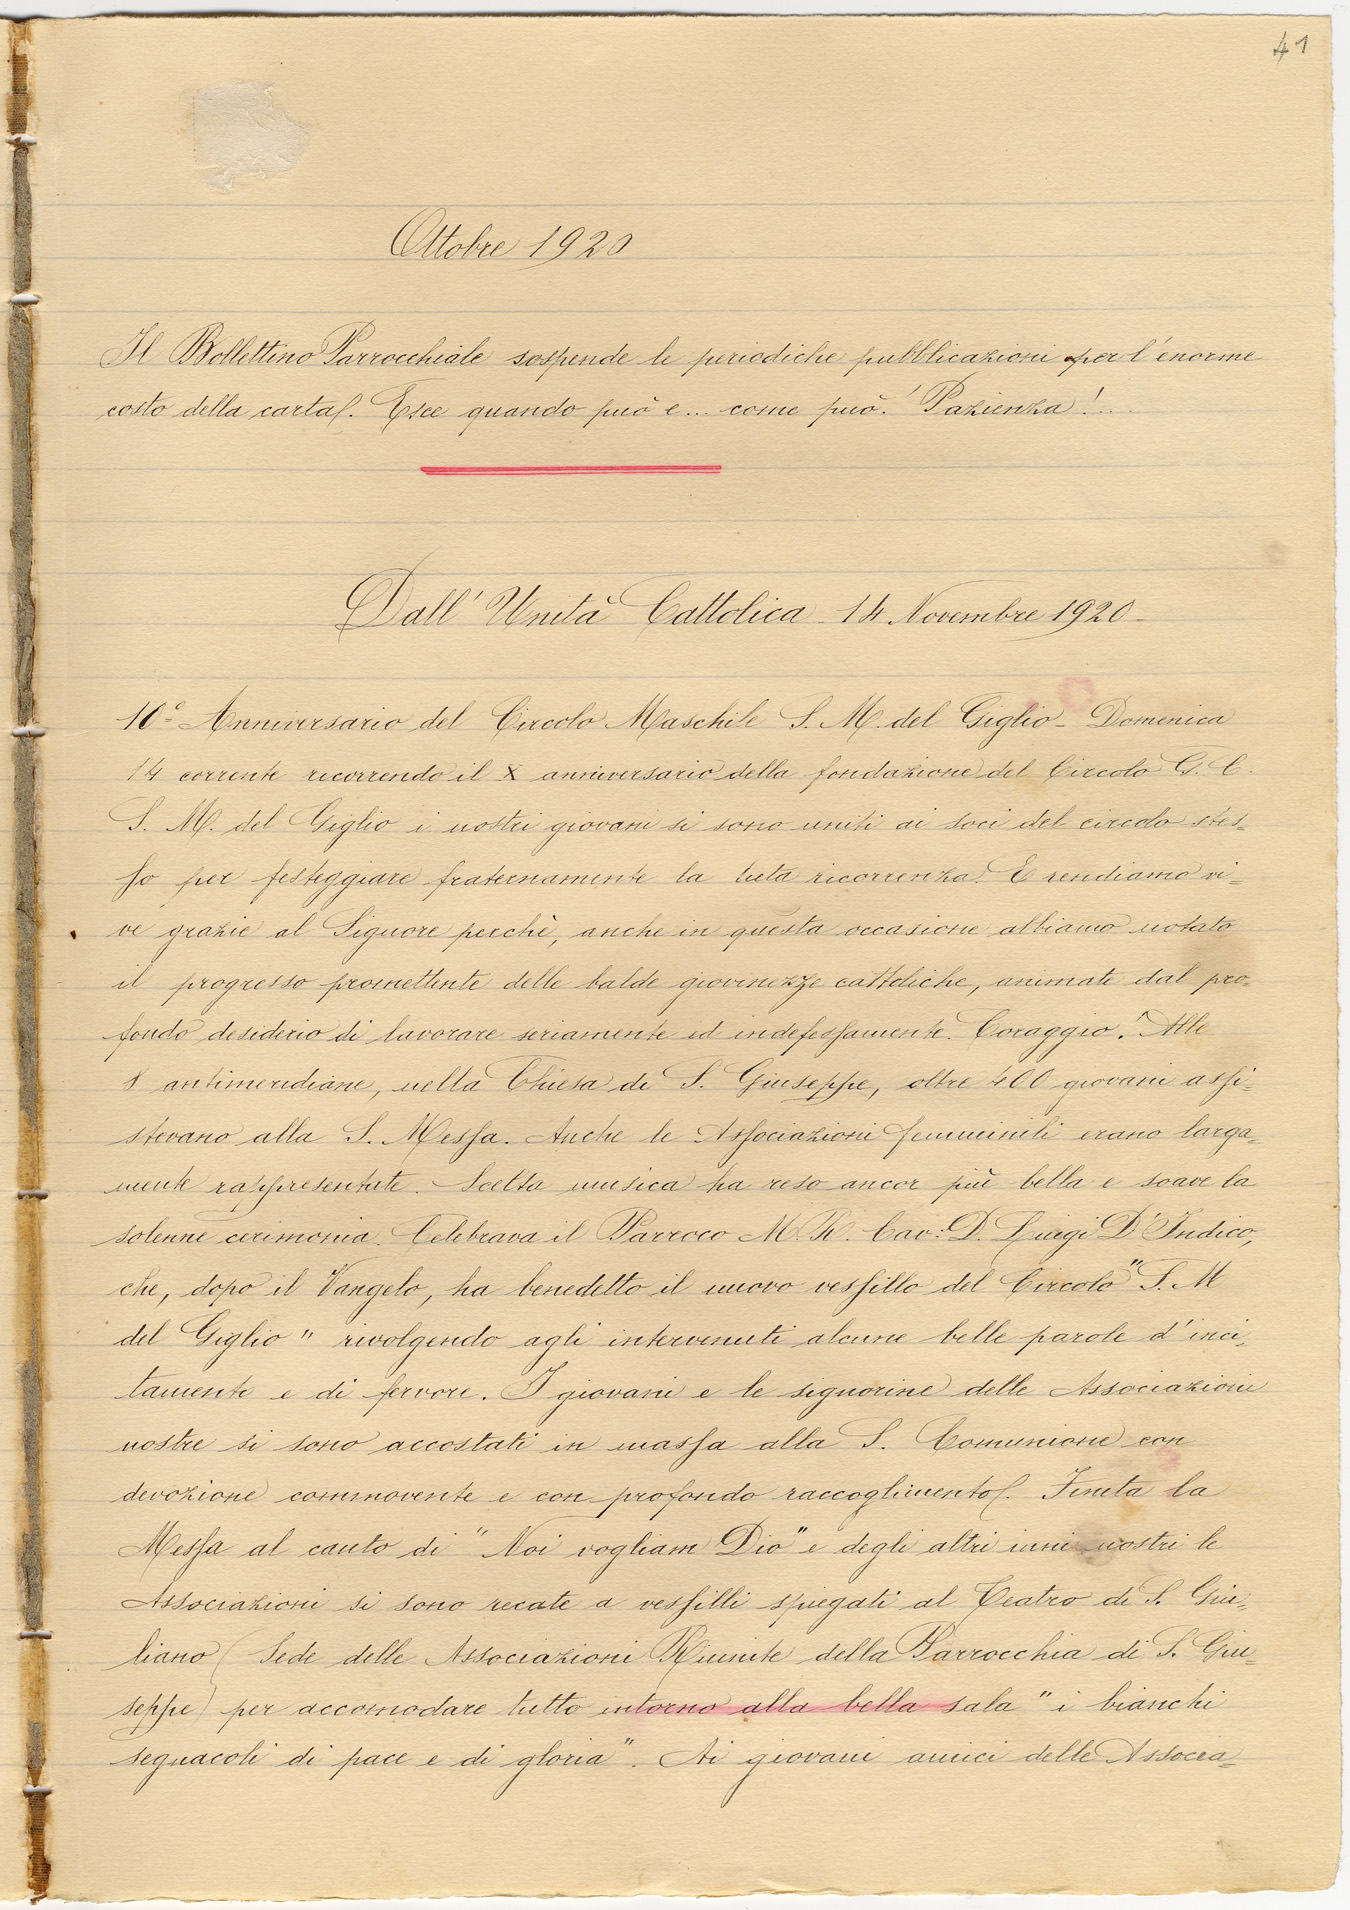 41
Ottobre 1920
Il Bollettino Parrocchiale sospende le periodiche pubblicazioni per l'enorme
costo della carta. Esce quando può e... come può.! Pazienza!...
Dall'Unità Cattolica - 14 Novembre 1920 -
10º Anniversario del Circolo Maschile S. M. del Giglio - Domenica
14 corrente ricorrendo il X anniversario della fondazione del Circolo G. C.
S. M. del Giglio i nostri giovani si sono uniti ai soci del circolo stes=
so per festeggiare fraternamente la lieta ricorrenza. E rendiamo vi=
ve grazie al Signore perchè, anche in questa occasione abbiamo notato
il progresso promettente delle balde giovinezze cattoliche, animate dal pro=
fondo desiderio di lavorare seriamente ed indefessamente. Coraggio! Alle
8 antimeridiane, nella Chiesa di S. Giuseppe, oltre 400 giovani assi=
stevano alla S. Messa. Anche le Associazioni femminili erano larga=
mente rappresentate. Scelta musica ha reso ancor più bella e soave la
solenne cerimonia. Celebrava il Parroco M. R. Cav: D. Luigi D'Indico,
che, dopo il Vangelo, ha benedetto il nuovo vessillo del Circolo "S. M
del Giglio" rivolgendo agli intervenuti alcune belle parole d'inci=
tamento e di fervore. I giovani e le signorine delle Associazioni
nostre si sono accostati in massa alla S. Comunione con
devozione commovente e con profondo raccoglimento. Finita la
Messa al canto di "Noi vogliam Dio" e degli altri inni nostri le
Associazioni si sono recate a vessilli spiegati al Teatro di S. Giu=
liano (Sede delle Associazioni Riunite della Parrocchia di S. Giu=
seppe) per accomodare tutto intorno alla bella sala "i bianchi
segnacoli di pace e di gloria". Ai giovani amici delle Associa=